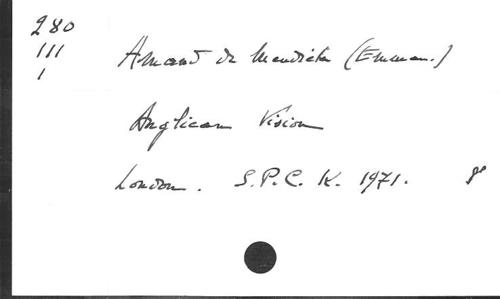 280
III
1
Amand de Mendieta (Emman.)
Anglican Vision
London. S.P.C.K. 1971. 8°